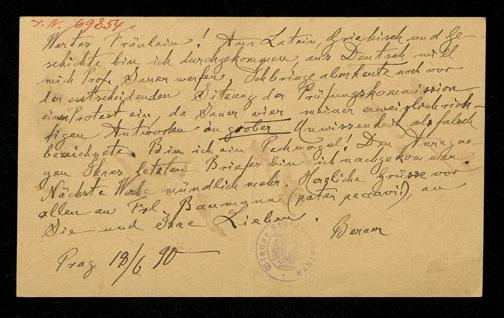 I.N. 69854
Wertes Fräulein! Aus Latein, Griechisch und Ge-
schichte bin ich durchgekommen, aus Deutsch will
mich Prof. Sauer werfen. Ich bringe aber heute noch vor
der entscheidenden Sitzung der Prüfungskommission
einen Protest ein, da Sauer vier meiner erweislich rich-
tigen Antworten in grober Unwissenheit als falsch
bezeichnete. Bin ich ein Pechvogel! Den Anregun-
gen Ihres letzten Briefes bin ich nachgekommen.
Nächste Woche mündlich mehr. Herzliche Grüsse vor
allen an Frl. Baumgann (pater peccavi!), an
Sie und Ihre Lieben.
Prag 18/6 90